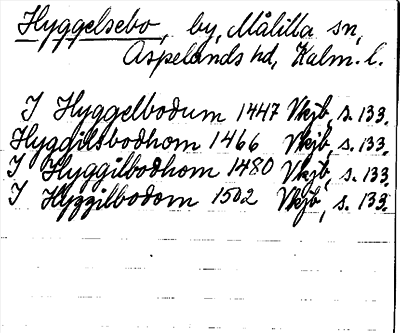 Hyggelsebo, by, Målilla sn,
Aspelands hd, Kalm. l.
I Hyggelbodum 1447 Vkjb, s. 133.
Hyggilsbodhom 1466 Vkjb, s. 133.
I Hyggilbodhom 1480 Vkjb, s. 133.
I Hyggilbodom 1502 Vkjb, s. 133.